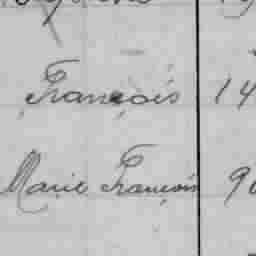 François 14
Marie François 90